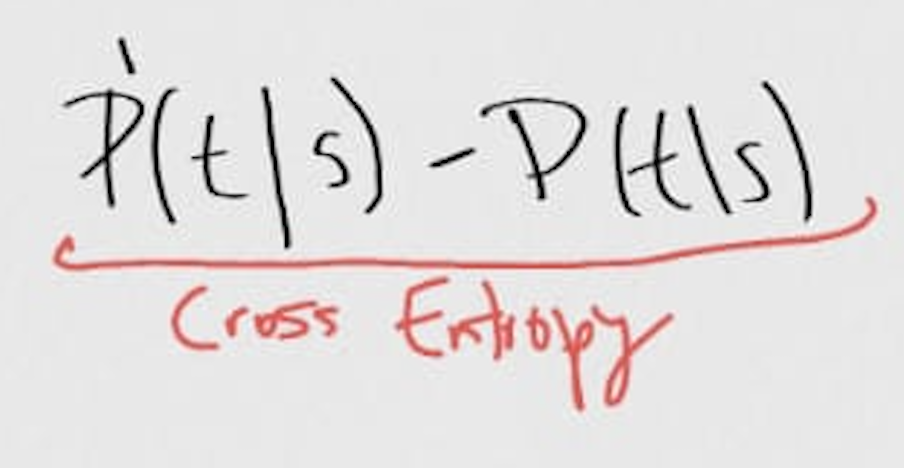 Ṗ(t|s) - P(t|s)
Cross Entropy